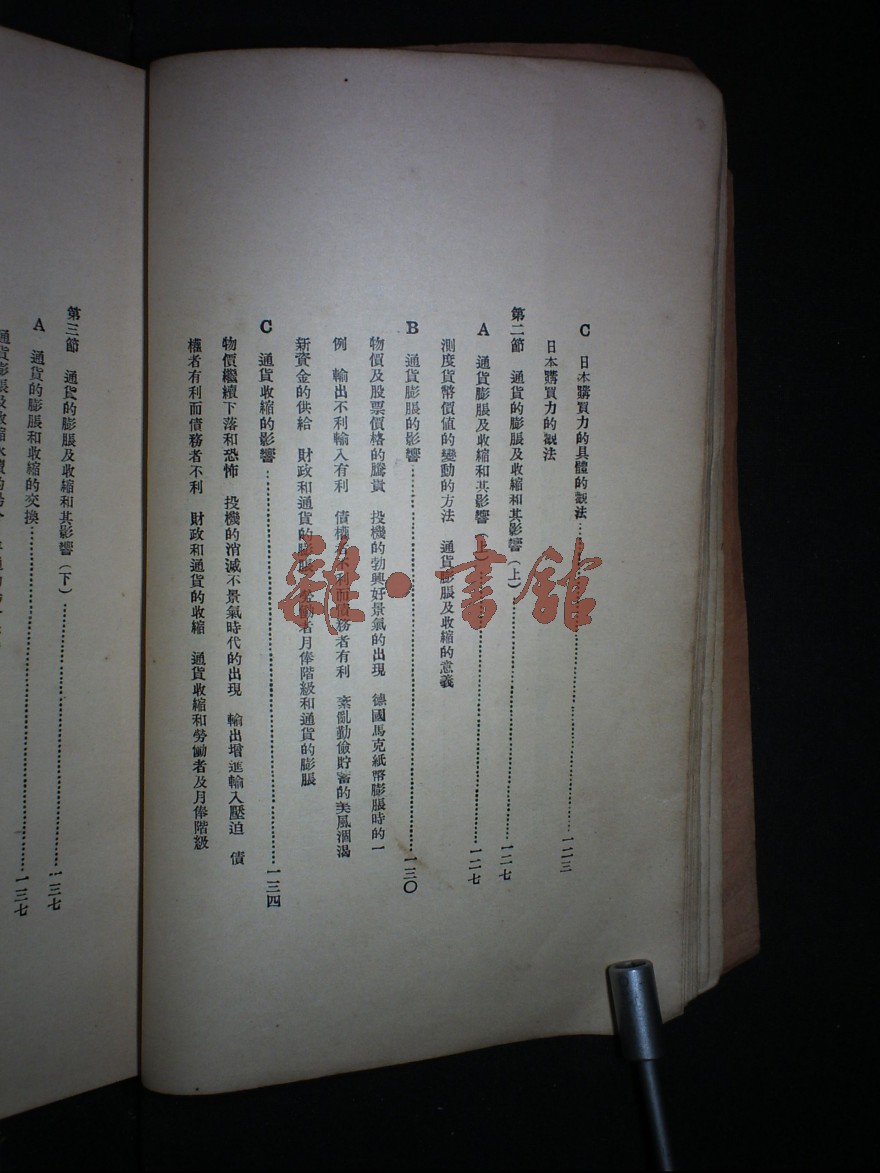 C 日本購買力的具體的觀法……一二三
日本購買力的觀法
第二節 通貨的膨脹及收縮和其影響(上)……一二七
A 通貨膨脹及收縮和其影響(上)……一二七
測度貨幣價值的變動的方法 通貨膨脹及收縮的意義
B 通貨膨脹的影響……一三〇
物價及股票價格的騰貴 投機的勃興好景氣的出現 德國馬克紙幣膨脹時的一
例 輸出不利輸入有利 債權者不利而債務者有利 紊亂勤儉貯蓄的美風涸渴
新資金的供給 財政和通貨的膨脹 勞働者月俸階級和通貨的膨脹
C 通貨收縮的影響……一三四
物價繼續下落和恐怖 投機的消滅不景氣時代的出現 輸出增進輸入壓迫 債
權者有利而債務者不利 財政和通貨的收縮 通貨收縮和勞働者及月俸階級
第三節 通貨的膨脹及收縮和其影響(下)……一三七
A 通貨的膨脹和收縮的交換……一三七
通貨膨脹及收縮
雜·書館